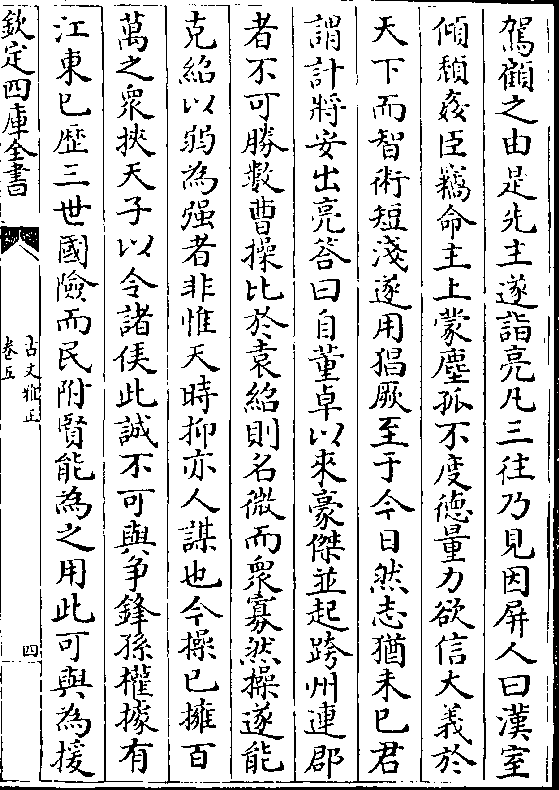 駕顧之由是先主遂詣亮凡三往乃見因屏人曰漢室
傾頽姦臣竊命主上蒙塵孤不度徳量力欲信大義於
天下而智術短淺遂用猖厥至于今日然志猶未已君
謂計將安出亮答曰自董卓以來豪傑並起跨州連郡
者不可勝數曹操比於袁紹則名微而衆寡然操遂能
克紹以弱為强者非惟天時抑亦人謀也今操已擁百
萬之衆挾天子以令諸侯此誠不可與争鋒孫權據有
江東已歴三世國險而民附賢能為之用此可與為援
欽定四庫全書
古文雅正
卷五
四